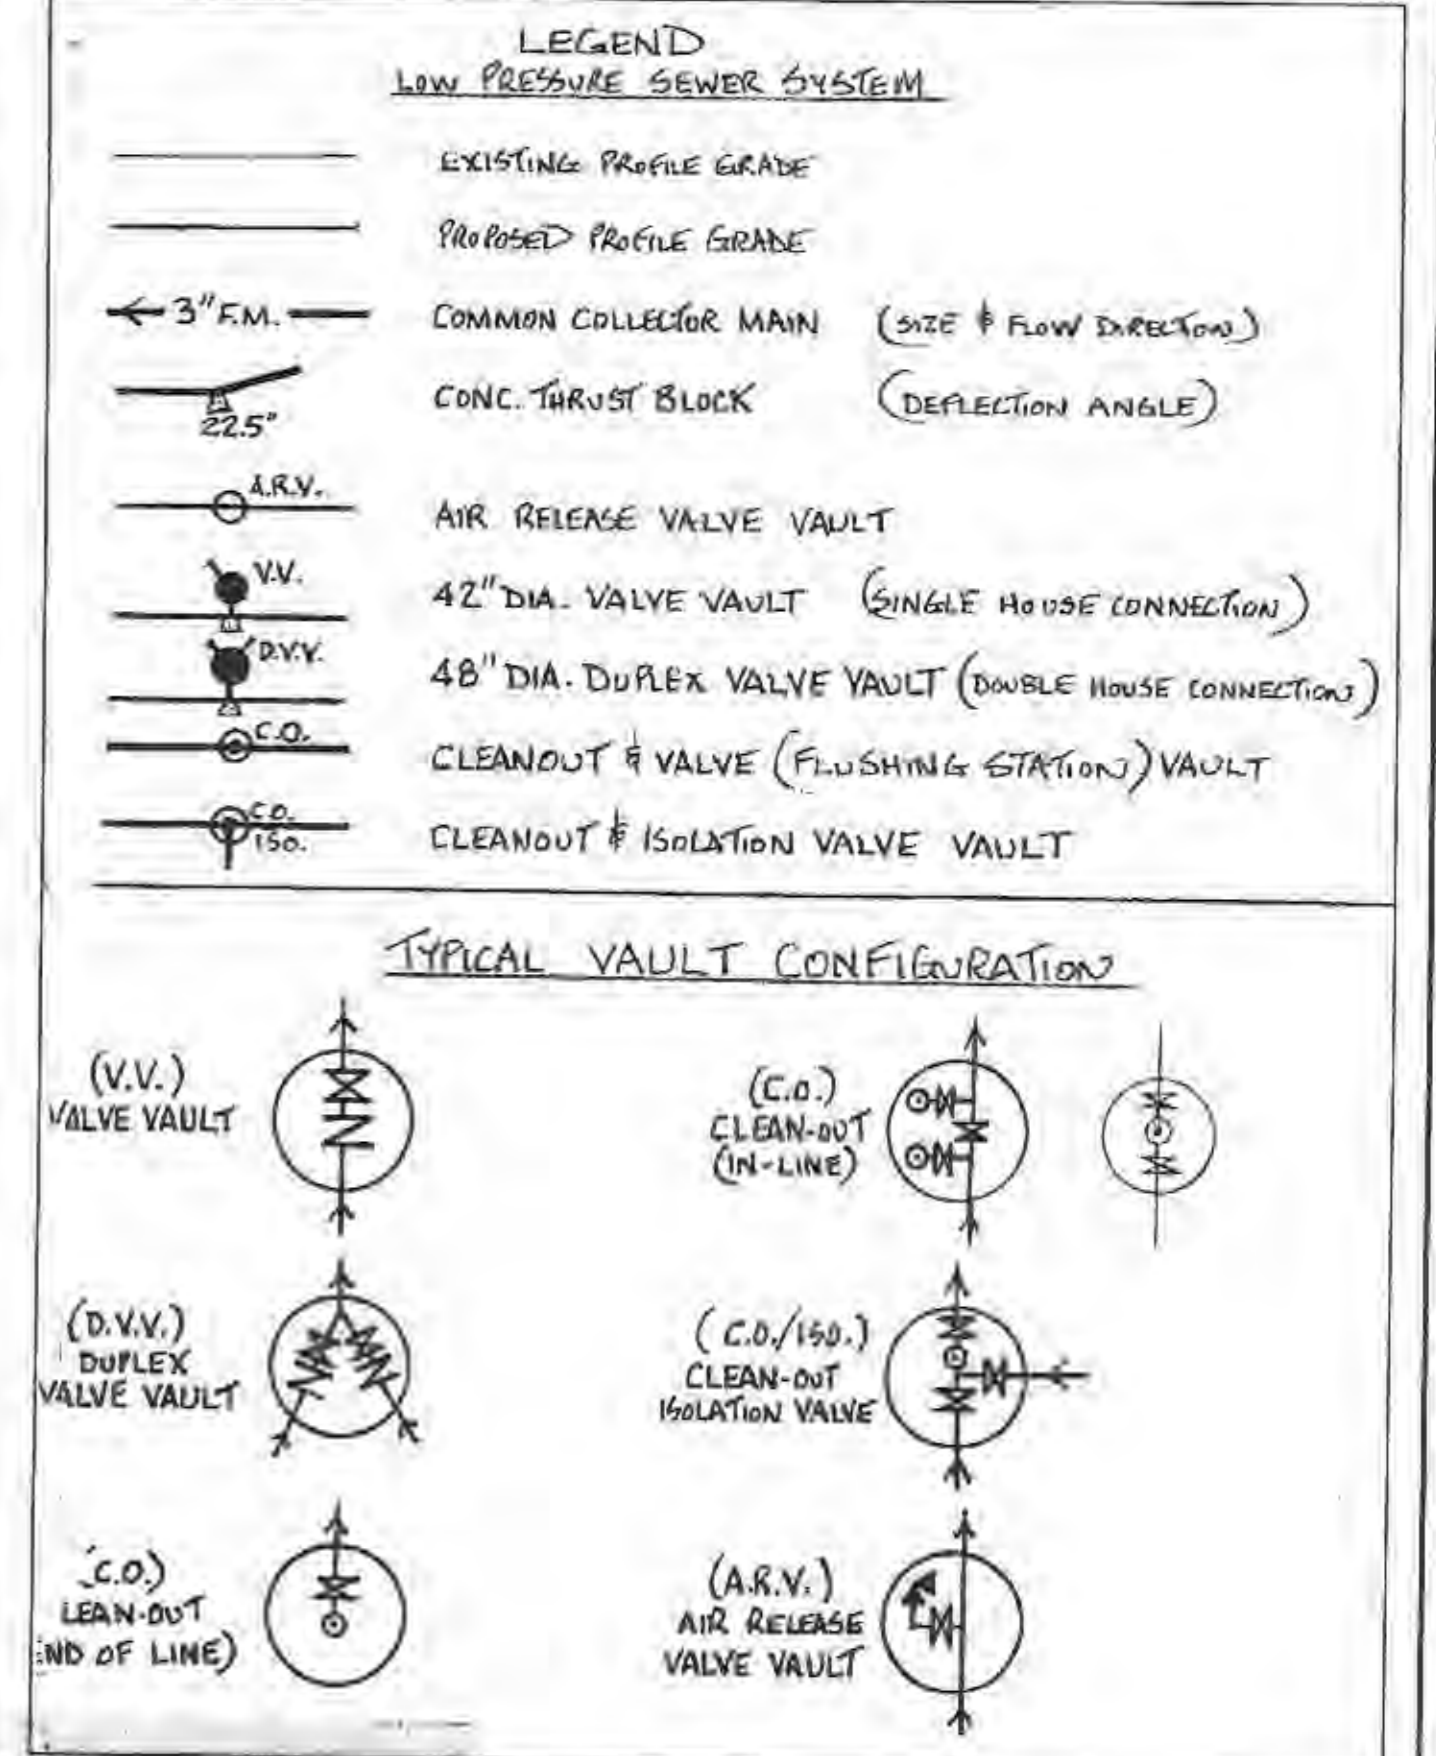 LEGEND
LOW PRESSURE SEWER SYSTEM
EXISTING PROFILE GRADE
PROPOSED PROFILE GRADE
3" F.M. COMMON COLLECTOR MAIN (SIZE & FLOW DIRECTION)
22.5° CONC. THRUST BLOCK (DEFLECTION ANGLE)
A.R.V. AIR RELEASE VALVE VAULT
V.V. 42" DIA. VALVE VAULT (SINGLE HOUSE CONNECTION)
D.V.V. 48" DIA. DUPLEX VALVE VAULT (DOUBLE HOUSE CONNECTION)
C.O. CLEANOUT & VALVE (FLUSHING STATION) VAULT
C.O.
ISO. CLEANOUT & ISOLATION VALVE VAULT
TYPICAL VAULT CONFIGURATION
(V.V.)
VALVE VAULT
(C.O.)
CLEAN-OUT
(IN-LINE)
(D.V.V.)
DUPLEX
VALVE VAULT
(C.O./ISO.)
CLEAN-OUT
ISOLATION VALVE
C.O.)
LEAN-OUT
ND OF LINE)
(A.R.V.)
AIR RELEASE
VALVE VAULT